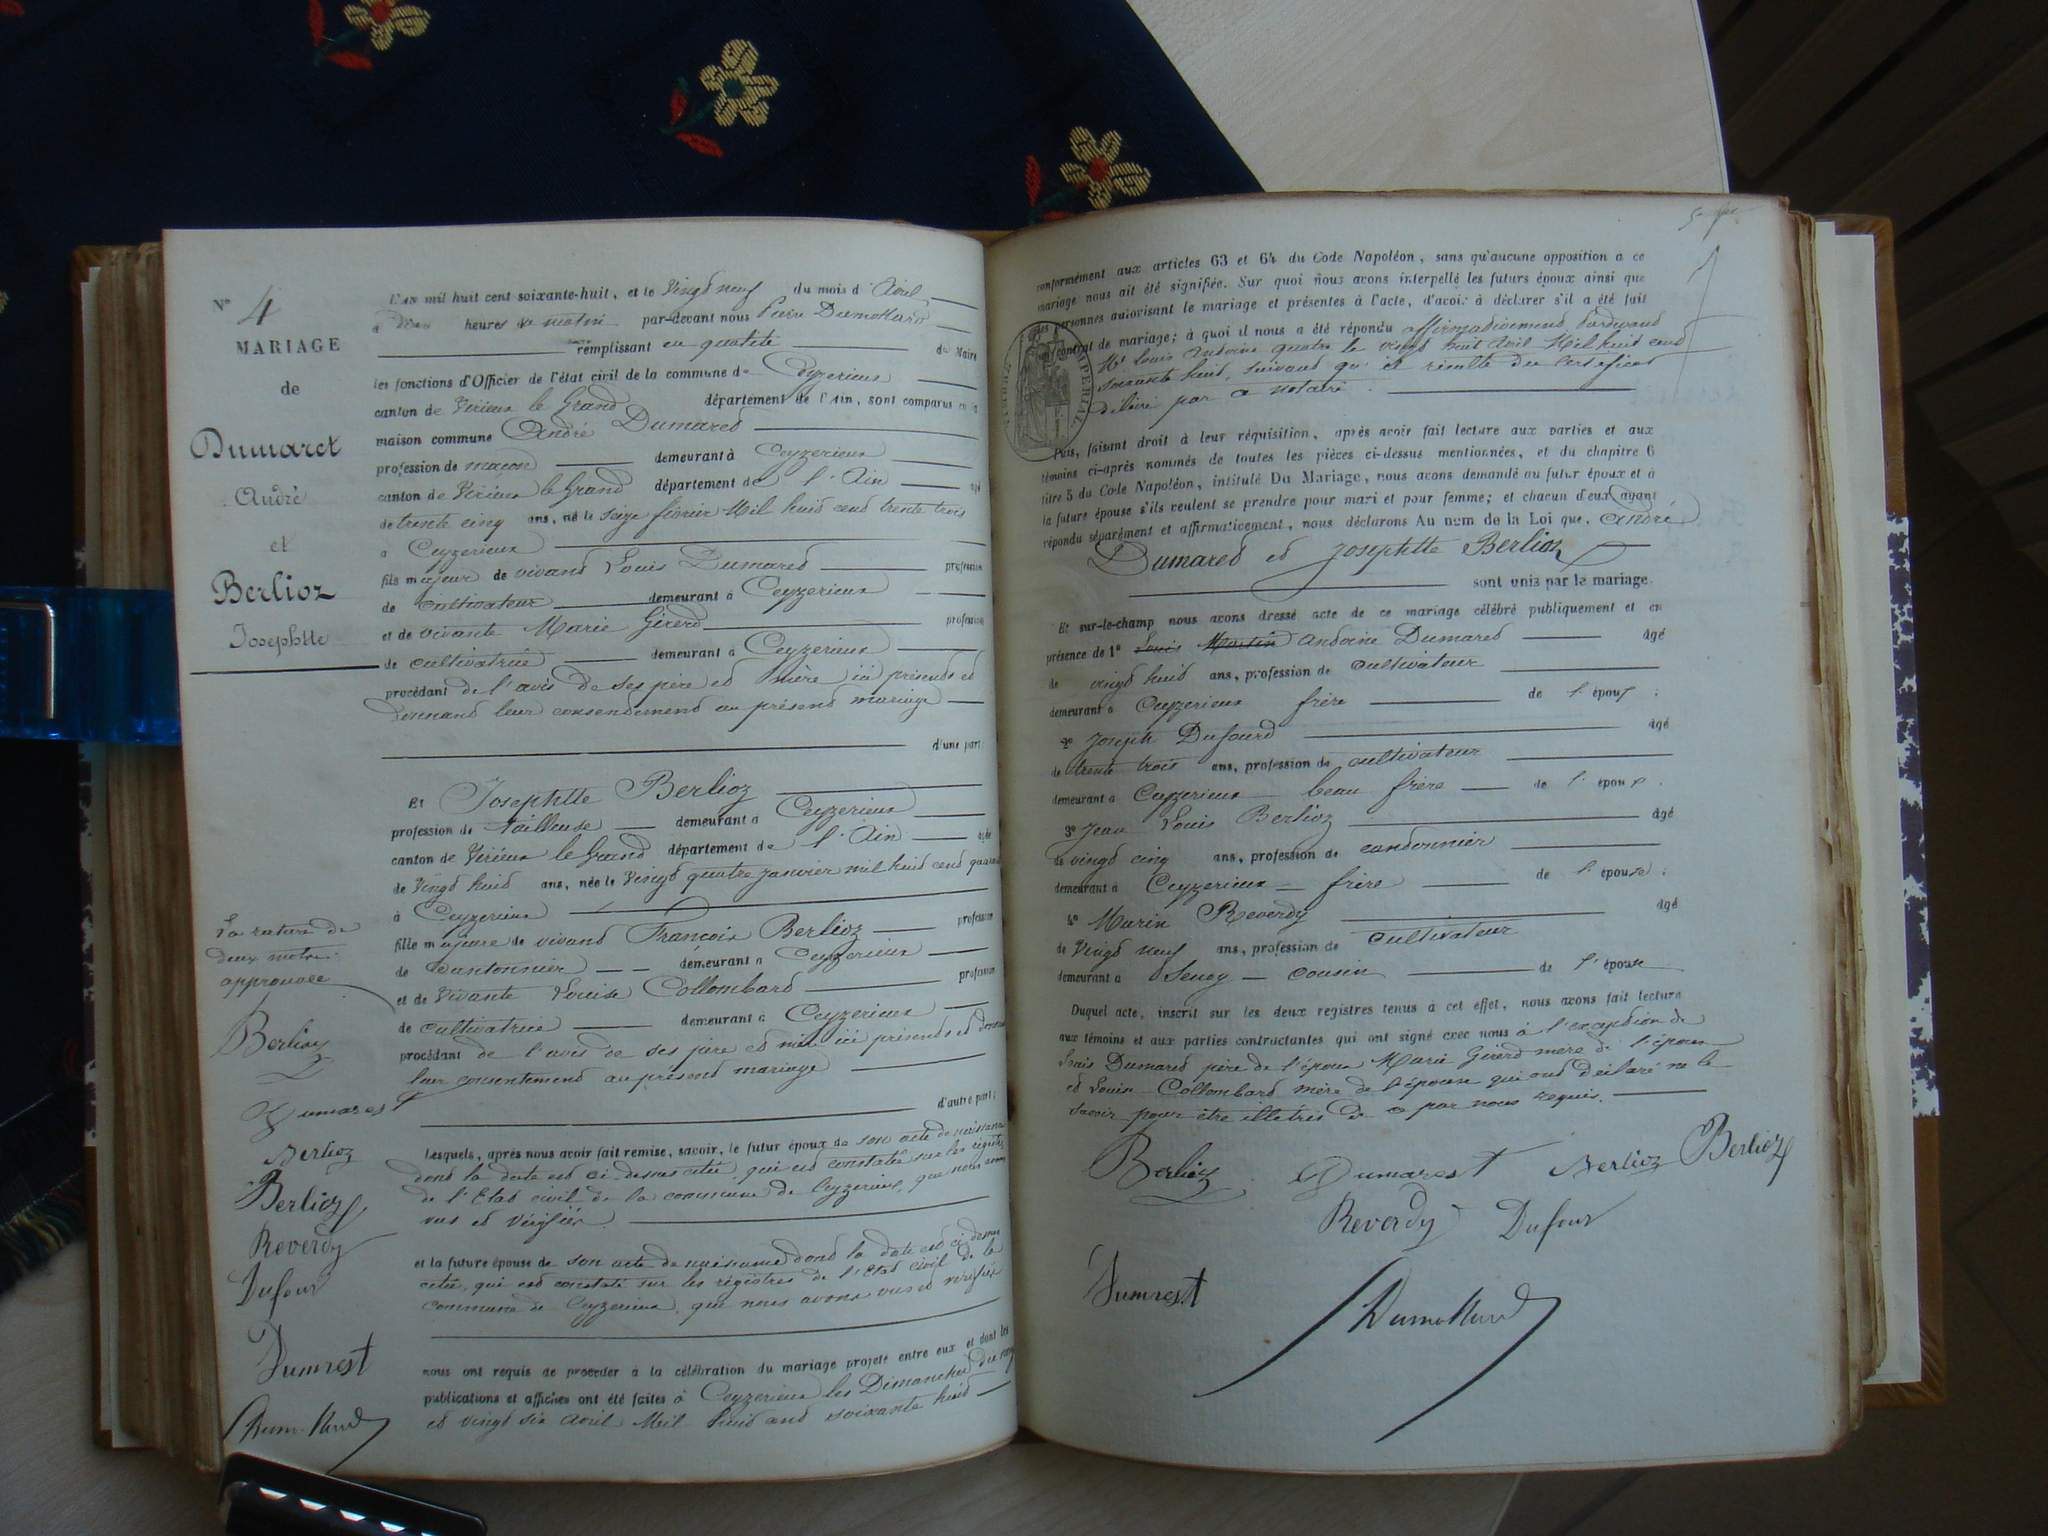 N° 4
MARIAGE
de
Dumaret
André
et
Berlioz
Josephtte
L'an mil huit cent soixante-huit, et le vingt neuf du mois d'avril
à heures du matin par-devant nous Pierre Dumollard
remplissant en qualité de Maire
les fonctions d'Officier de l'état civil de la commune de Ceyzerieux
canton de Virieux le Grand département de l'Ain, sont comparus en la
maison commune André Dumaret
profession de maçon demeurant à Ceyzerieux
canton de Virieux le Grand département de l'Ain âgé
de trente cinq ans, né le seize février Mil huit cent trente trois
à Ceyzerieux
fils majeur de vivant Louis Dumaret profession
de cultivateur demeurant à Ceyzerieux
et de vivante Marie Girerd profession
de cultivatrice demeurant à Ceyzerieux
procédant de l'avis de ses père et mère ici présents et
donnant leur consentement au présent mariage
d'une part;
Et Josephtte Berlioz
profession de tailleuse demeurant à Ceyzerieux
canton de Virieux le Grand département de l'Ain âgée
de vingt huit ans, née le vingt quatre janvier mil huit cent quarante
à Ceyzerieux
fille majeure de vivant François Berlioz profession
de cantonnier demeurant à Ceyzerieux
et de vivante Louise Collombard profession
de cultivatrice demeurant à Ceyzerieux
procédant de l'avis de ses père et mère ici présents et donnant
leur consentement au présent mariage
d'autre part;
Lesquels, après nous avoir fait remise, savoir, le futur époux de son acte de naissance
dont la date est ci dessus citée, qui est constatée sur les régistres
de l'Etat civil de la commune de Ceyzerieux, que nous avons
vus et vérifiés
et la future épouse de son acte de naissance dont la date est ci dessus
citée, qui est constaté sur les régistres de l'Etat civil de la
commune de Ceyzerieux, que nous avons vus et vérifiés
nous ont requis de procéder à la célébration du mariage projeté entre eux et dont les
publications et affiches ont été faites à Ceyzerieux les Dimanches dix neuf
et vingt six avril Mil huit cent soixante huit
La rature de
deux mots
approuvée
Berlioz
Dumarest
Berlioz
Berlioz
Reverdy
Dufour
Dumrest
Dumollard
conformément aux articles 63 et 64 du Code Napoléon, sans qu'aucune opposition à ce
mariage nous ait été signifiée. Sur quoi nous avons interpellé les futurs époux ainsi que
les personnes autorisant le mariage et présentes à l'acte, d'avoir à déclarer s'il a été fait
un contrat de mariage; à quoi il nous a été répondu affirmativement pardevant
Me Louis Antoine quatre le vingt huit avril Mil huit cent
soixante huit, suivant qu'il résulte du certificat
délivré par ce notaire
TIMBRE IMPERIAL
Puis, faisant droit à leur réquisition, après avoir fait lecture aux parties et aux
témoins ci-après nommés de toutes les pièces ci-dessus mentionnées, et du chapitre 6
titre 5 du Code Napoléon, intitulé Du Mariage, nous avons demandé au futur époux et à
la future épouse s'ils veulent se prendre pour mari et pour femme; et chacun d'eux ayant
répondu séparément et affirmativement, nous déclarons Au nom de la Loi que, André
Dumaret et Josephtte Berlioz
sont unis par le mariage.
Et sur-le-champ nous avons dressé acte de ce mariage célébré publiquement et en
présence de 1° Louis Martin Antoine Dumaret âgé
de vingt huit ans, profession de cultivateur
demeurant à Ceyzerieux frère de l'époux;
2° Joseph Dufourd âgé
de trente trois ans, profession de cultivateur
demeurant à Ceyzerieux beau frère de l'époux;
3° Jean Louis Berlioz âgé
de vingt cinq ans, profession de cordonnier
demeurant à Ceyzerieux frère de l'épouse;
4° Marin Reverdy âgé
de vingt neuf ans, profession de cultivateur
demeurant à cousin de l'épouse
Duquel acte, inscrit sur les deux registres tenus à cet effet, nous avons fait lecture
aux témoins et aux parties contractantes qui ont signé avec nous à l'exception de
Louis Dumaret père de l'époux Marie Girerd mère de l'époux
et Louise Collombard mère de l'épouse qui ont déclaré ne le
savoir pour être illetrés de ce par nous requis.
Berlioz Dumarest Berlioz Berlioz
Reverdy Dufour
Dumrest
Dumollard